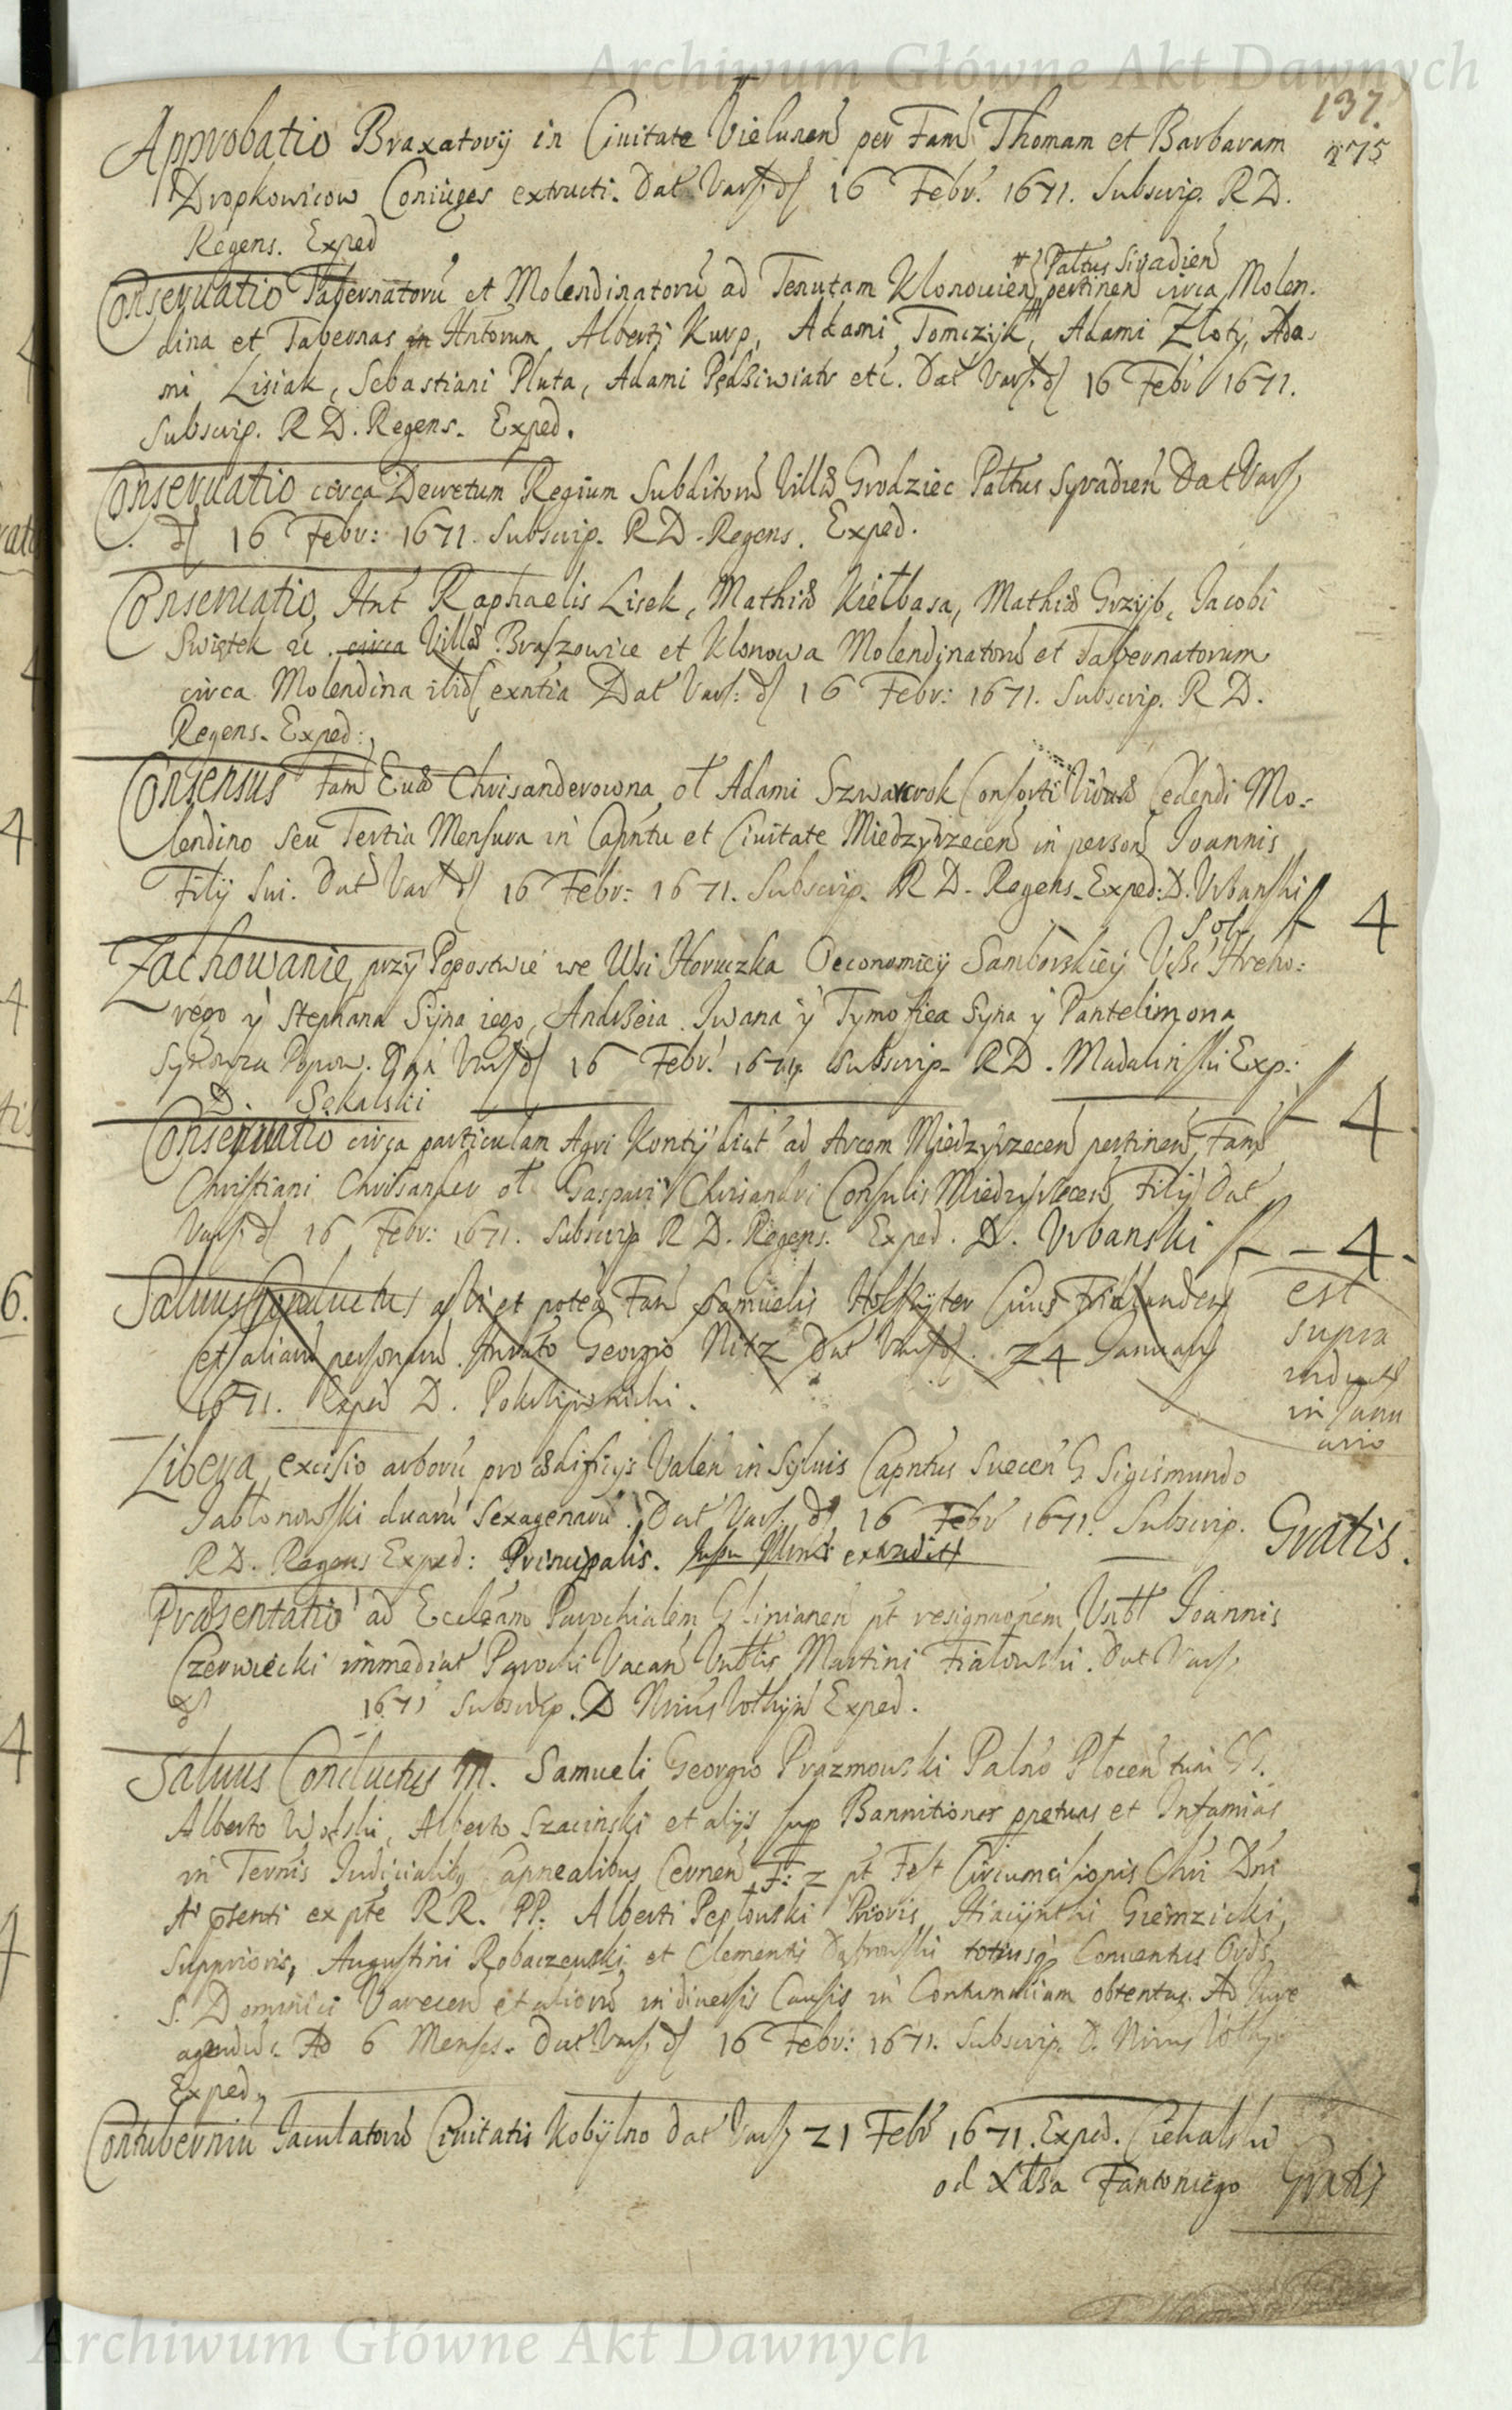 Archiwum Główne Akt Dawnych
137.
275
Approbatio Braxatorij in Ciuitate Vielunen per Fam Thomam et Barbaram
Dropkowicow Coniuges extructi. Dat Vars. d 16 Febr. 1671. Subscrip. R D.
Regens. Exped
Pałtus Siradien
Conseruatio Tabernatorũ et Molendinatorũ ad Tenutam Klonouien pertinen circa Molen-
dina et Tabernas Hntorum Alberti Kurp, Adami Tomczyk, Adami Złoty, Ada-
mi Lisiak, Sebastiani Pluta, Adami Pędziwiatr etc. Dat Vars. d 16 Febr 1671.
Subscrip. R D. Regens. Exped.
Conseruatio circa Decretum Regium Subditorũ Villæ Grodziec Pałtus Syradien Dat Vars,
d 16 Febr: 1671. Subscrip. R D. Regens. Exped.
Conseruatio, Hnt Raphaelis Lisek, Mathiæ Kiełbasa, Mathiæ Grzyb, Iacobi
Swiętek circa Villæ Braszowice et Klonowa Molendinatorũ et Tabernatorum
circa Molendina ibid exntia Dat Vars: d 16 Febr: 1671. Subscrip. R D.
Regens. Exped:
Consensus Fam Euæ Chrisanderowna, ol Adami Consorti Viduæ Cedendi Mo-
lendino seu Tertia Mensura in Capntu et Ciuitate Miedzyrzecen in person Ioannis
Filij Sui. Dat Vars d 16 Febr: 1671. Subscrip. R D. Regens. Exped: D. Vrbanski
Sol. f 4
Zachowanie przy Popostwie we Wsi Horuczka Oeconomiey Samborskiey Hreho-
rego y Stephana Syna iego, Andrzeia Iwana y Tymofiea Syna y Pantelimona
Popow. Dat Vars d 16 Febr. 1671. Subscrip. R D. Madalinski Exp:
D. Sękalski f 4.
Conseruatio circa particulam Agri Konty dict ad Arcem Miedzyrzecen pertinen, Fam
Christiani Chrisander ol Gaspari Chrisandri Consulis Miedzyrzecen Filij Dat
Vars. d 16 Febr: 1671. Subscrip R D. Regens. Exped. D. Vrbanski f - 4.
Saluus Conductus Fam Samuelis
et aliam personam Georgio Nitz Dat Vars d. 24 Ianuarij
1671. Exped D.
est
supra
in Ianu
ario
Libera excisio arborũ pro ædificijs Valen in Syluis Capntus Suecen G. Sigismundo
Iabłonowski duarũ Sexagenarũ. Dat Vars. d 16 Febr 1671. Subscrip. Gratis.
R D. Regens Exped: Principalis.
Præsentatio ad Eccleam Parochialem Glinianen pt resignaonem Vnbl Ioannis
Czerwiecki immediat Parochi Vacan Vnblis Martini Fiałowski. Dat Vars,
d 1671 Subscrip. D Exped.
Saluus Conductus M. Samueli Georgio Prazmowski Palno Płocen tum GG.
Alberto Wolski, Alberto Szacinski et alijs sup Bannitiones ppetuas et Infamias
in Termis Iudicialib Capnealibus Cernen F: 2 pt Fest Circumcisionis Chri Dni
Ao psenti ex pte RR. PP. Alberti Pepłowski Prioris, Hiacijnthi Giemzicki,
Suppriorís, Augustini Robaczewski et Clementis Dąbrowski totiusq Conuentus Ordis
S. Dominici Varecen et aliorũ in diuersis Causis in Contumaciam obtentas. Ad Iure
agendũ. Ad 6 Menses. Dat Vars. d 16 Febr: 1671. Subscrip. D.
Exped,
Contuberniũ Iaculatorũ Ciuitatis Kobylno Dat Vars, 21 Febr 1671. Exped. Ciekalski
od Xdza Fantoniego Gratis
Archiwum Główne Akt Dawnych